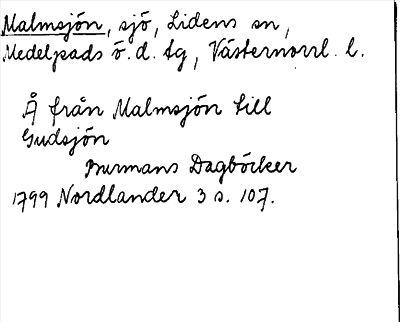 Malmsjön, sjö, Lidens sn,
Medelpads ö. d. tg, Västernorrl. l.
Å från Malmsjön till
Gudsjön
Burmans Dagböcker
1799 Nordlander 3 s. 107.